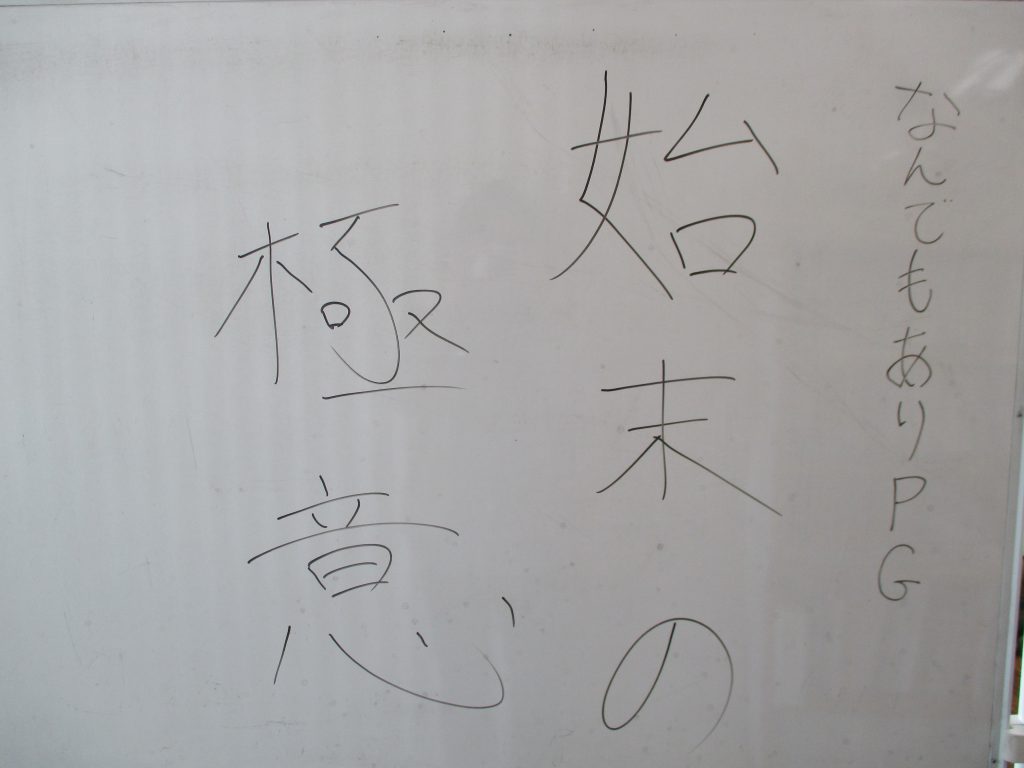 なんでもありPG
始末の
極意